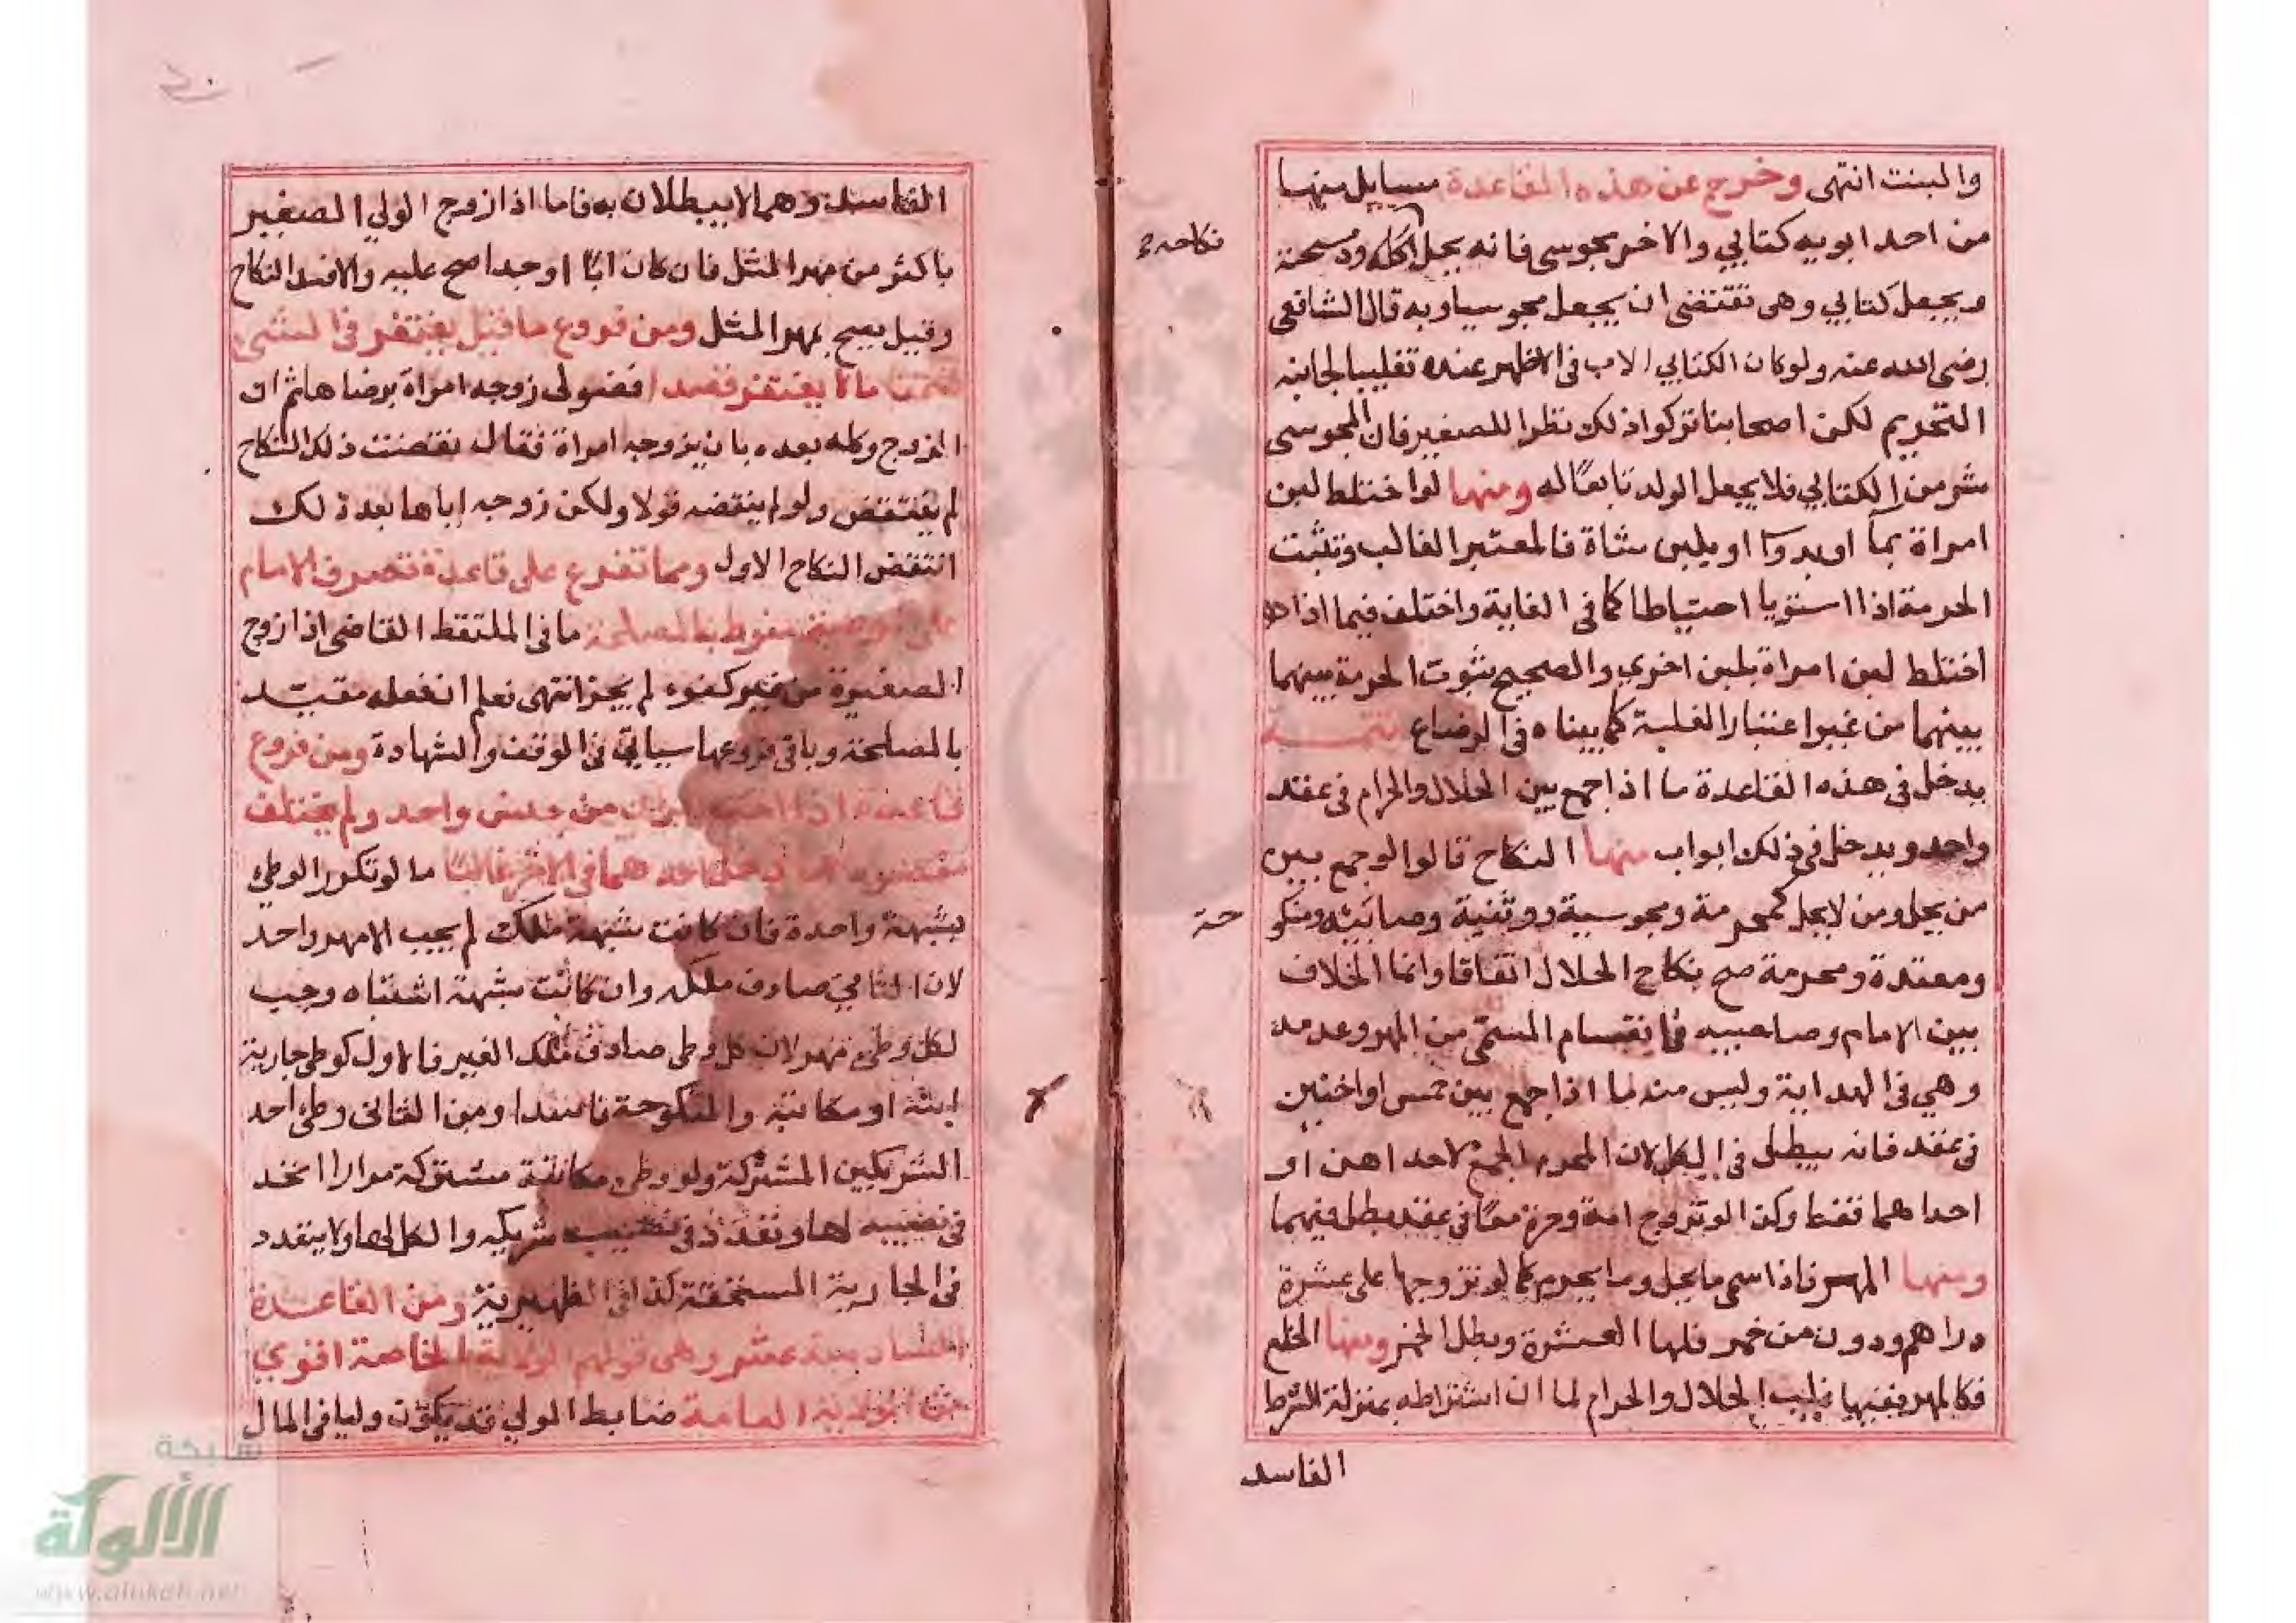 والبنت انتهى وخرج عن هذه القاعدة مسايل منها
من احد ابويه كتابي والاخر مجوسي فانه يحل اكله وذبيحته
نكاحه
ويجعل كتابي وهي تقتضي ان يجعل مجوسيا وبه قال الشافعي
رضي الله عنه ولو كان الكتابي الاب في الاظهر عنده تغليبا لجانب
التحريم لكن اصحابنا تركوا ذلك نظرا للصغير فان المجوسي
شر من الكتابي فلا يجعل الولد تابعا له ومنها لو اختلط لبن
امراة بماء او بدواء او بلبن شاة فالمعتبر الغالب وتثبت
الحرمة اذا استويا احتياطا كما في الغاية واختلف فيما اذا
اختلط لبن امراة بلبن اخري والصحيح ثبوت الحرمة بينهما
بينهما من غير اعتبار الغلبة كما بيناه في الرضاع تتمة
يدخل في هذه القاعدة ما اذا جمع بين الحلال والحرام في عقد
واحد ويدخل في ذلك ابواب منها النكاح قالوا لو جمع بين
من يحل ومن لا يحل كمحرمة ومجوسية ووثنية وصابئية ومنكو
حة
ومعتدة ومحرمة صح نكاح الحلال اتفاقا وانما الخلاف
بين الامام وصاحبيه في انقسام المسمى من المهر وعدمه
وهي في الهداية وليس منه ما اذا جمع بين خمس او اختين
في عقد فانه يبطل في الكل لان المحرم الجمع لا احداهن او
احداهما فقط وكذا لو تزوج امة وحرة معا في عقد بطل فيهما
ومنها المهر فاذا سمى ما يحل وما يحرم كما لو تزوجها على عشرة
دراهم ودون من خمر فلها العشرة وبطل الخمر ومنها الخلع
فكالمهر ففيها غلب الحلال والحرام لما ان اشتراطه بمنزلة الشرط
الفاسد
الفاسد وهما لا يبطلان به فاما اذا زوج الولي الصغير
باكثر من مهر المثل فان كان ابا او جدا صح عليه والا فسد النكاح
وقيل يصح بمهر المثل ومن فروع ما قيل يغتفر في الشيء
ضمنا ما لا يغتفر قصدا فضولي زوجه امراة برضاها ثم ان
الزوج وكله بعده بان يزوجه امراة فقال نقضت ذلك النكاح
لم ينتقض ولو لم ينقضه قولا ولكن زوجه اياها بعد ذلك
انتقض النكاح الاول ومما تفرع على قاعدة تصرف الامام
على منوط بالمصلحة ما في الملتقط القاضي اذا زوج
الصغيرة من غير كفوء لم يجز انتهى نعلم ان فعله مقيد
بالمصلحة وباقي فروعها سياتي في الوقف والشهادة ومن فروع
قاعدة اذا اجتمع امران من جنس واحد ولم يختلف
مقصودهما دخل احدهما في الاخر غالبا ما لو تكرر الوطئ
بشبهة واحدة فان كانت شبهة ملك لم يجب الا مهر واحد
لان الثاني صادف ملكه وان كانت شبهة اشتباه وجب
لكل وطئ مهر لان كل وطئ صادف ملك الغير فالاول كوطئ جارية
ابنه او مكاتبه والمنكوحة فاسدا ومن الثاني وطئ احد
الشريكين المشتركة ولو وطئ مكاتبة مشتركة مرارا اتحد
في نصيبه لها وتعدد في نصيب شريكه والكل لها ولا يتعدد
في الجارية المستحقة كذا في الظهيرية ومن القاعدة
السادسة عشر وهي قولهم الولاية الخاصة اقوي
من الولاية العامة ضابط الولي قد يكون وليا في المال
شبكة
الألوكة
www.alukah.net